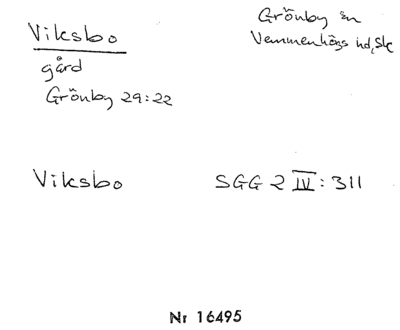 Viksbo
gård
Grönby 29:22
Grönby sn
Vemmenhögs hd, Sk
Viksbo
SGG 2 IV: 311
Nr 16495